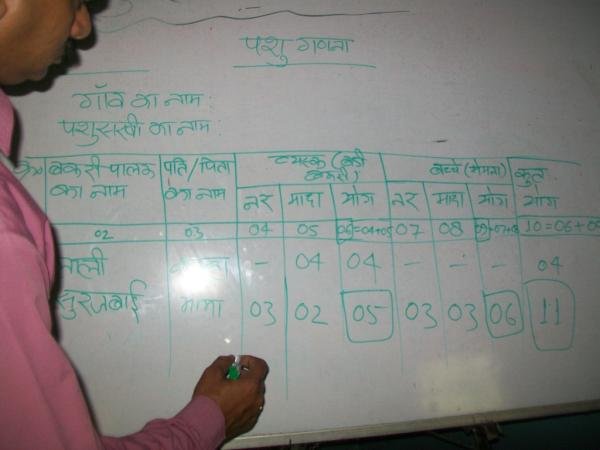 पशु गणना
गाँव का नाम :
पशुसखी का नाम :
क्र० बकरी-पालक का नाम पति/पिता का नाम व्यस्क (बकरी बकरा) बच्चे (मेमना) कुल योग
नर मादा योग नर मादा योग
02 03 04 05 06=04+05 07 08 09=07+08 10=06+09
- 04 04 - - - 04
सुरजबाई मामा 03 02 05 03 03 06 11